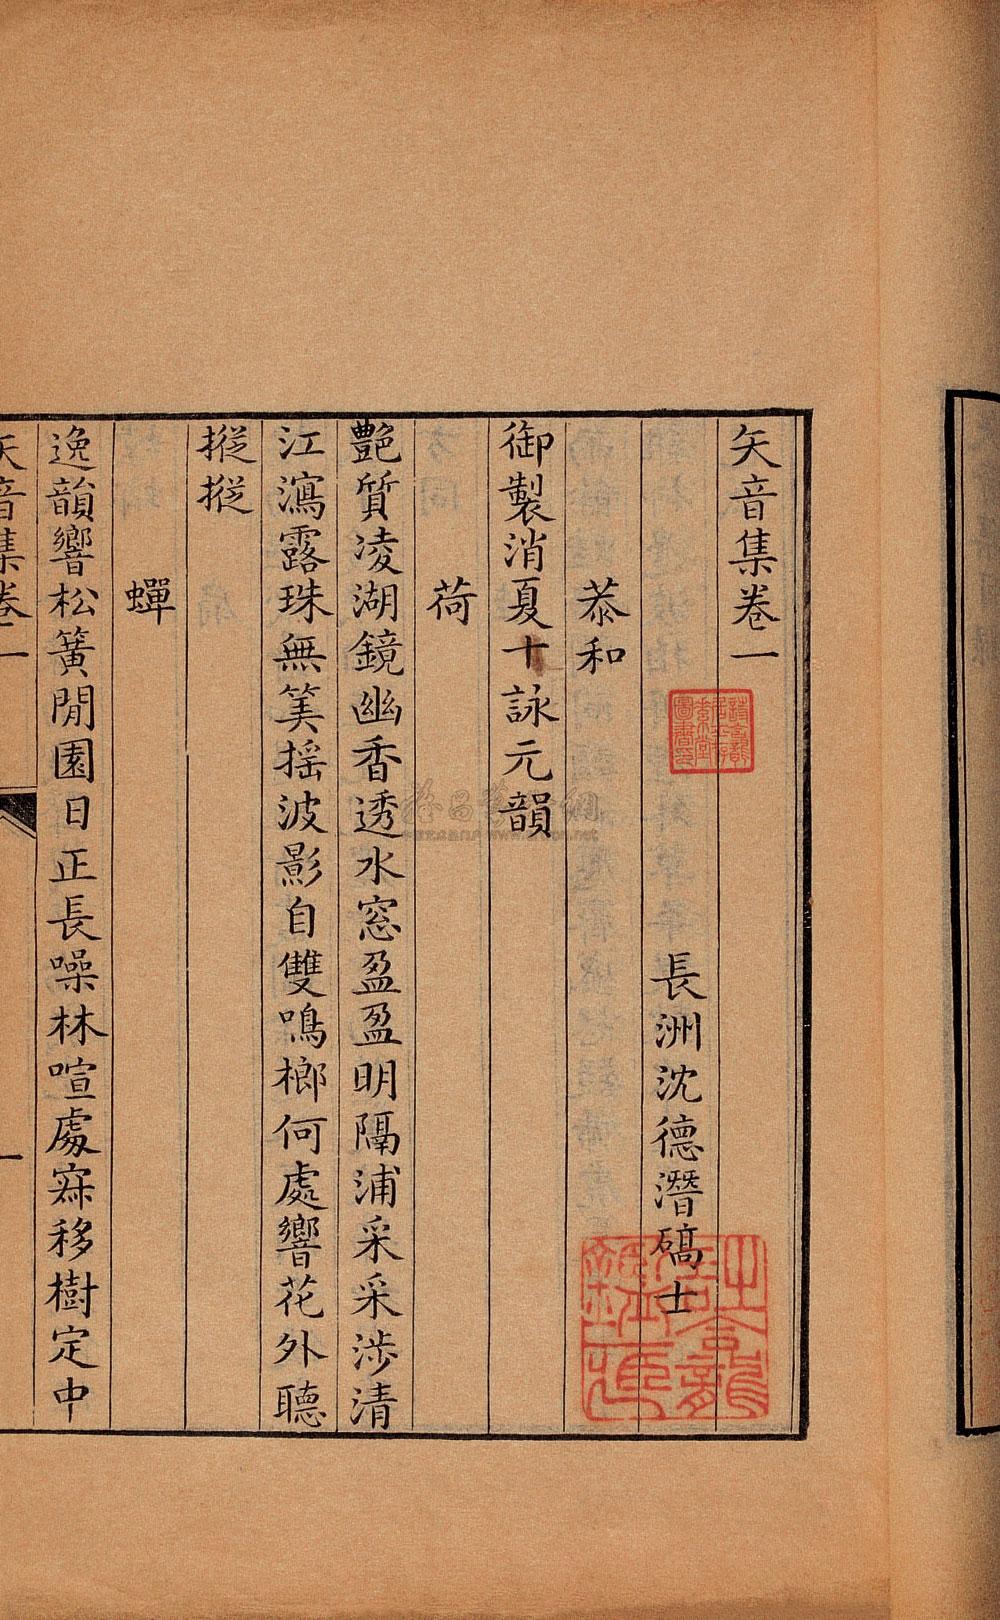 矢音集卷一
長洲沈德潛碻士
恭和
御製消夏十詠元韻
荷
艷質凌湖鏡幽香透水窓盈盈明隔浦采采涉清
江瀉露珠無筭搖波影自雙鳴榔何處響花外聽
摐摐
蟬
逸韻響松簧閒園日正長噪林喧處寂移樹定中
矢音集卷一
一